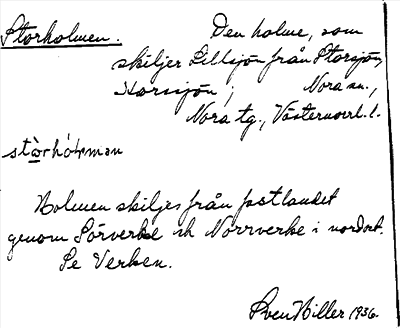 Storholmen.
Den holme, som
skiljer Lillsjön från Storsjön,
Horssjön; Nora sn.,
Nora tg., Västernorrl. l.
stòrhólmən
Holmen skiljes från fastlandet
genom Sörverke och Norrverke i nordost.
Se Verken.
Sven Hiller 1936.